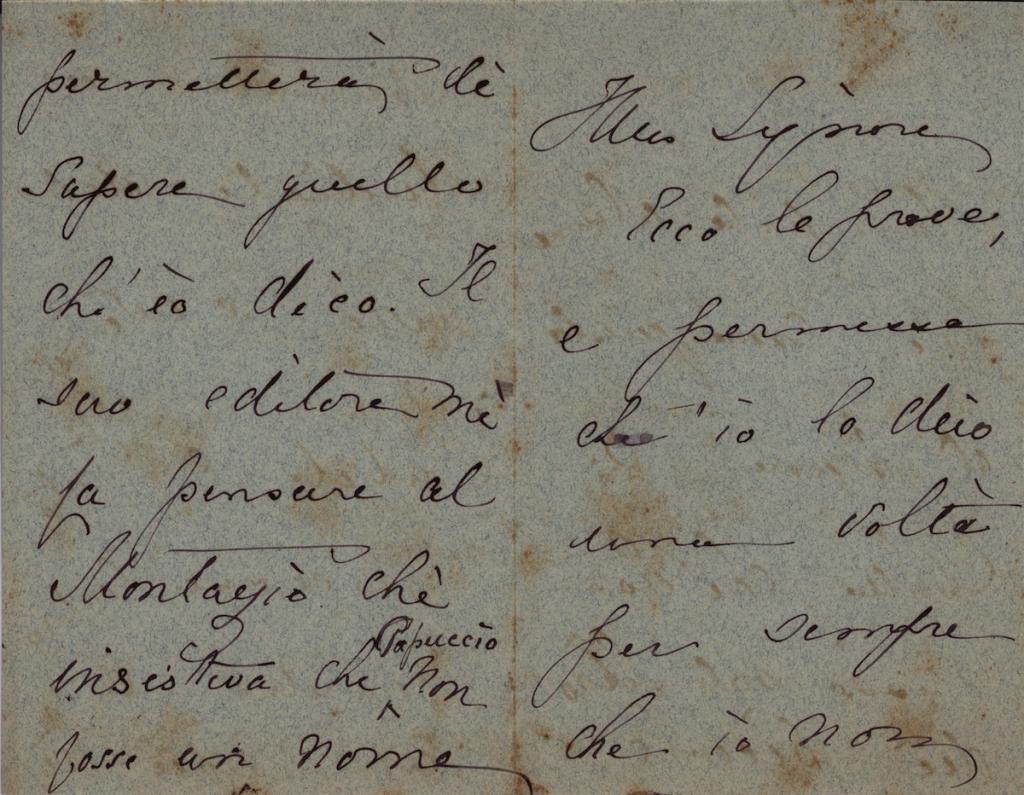 permetterà di
Sapere quello
ch'io dico. Il
suo editore mi
fa pensare al
Montagiò che
insisteva che Papuccio non
fosse un nome
Illmo Signore
Ecco le prove,
e permessa
che io lo dico
una volta
per sempre
che io non